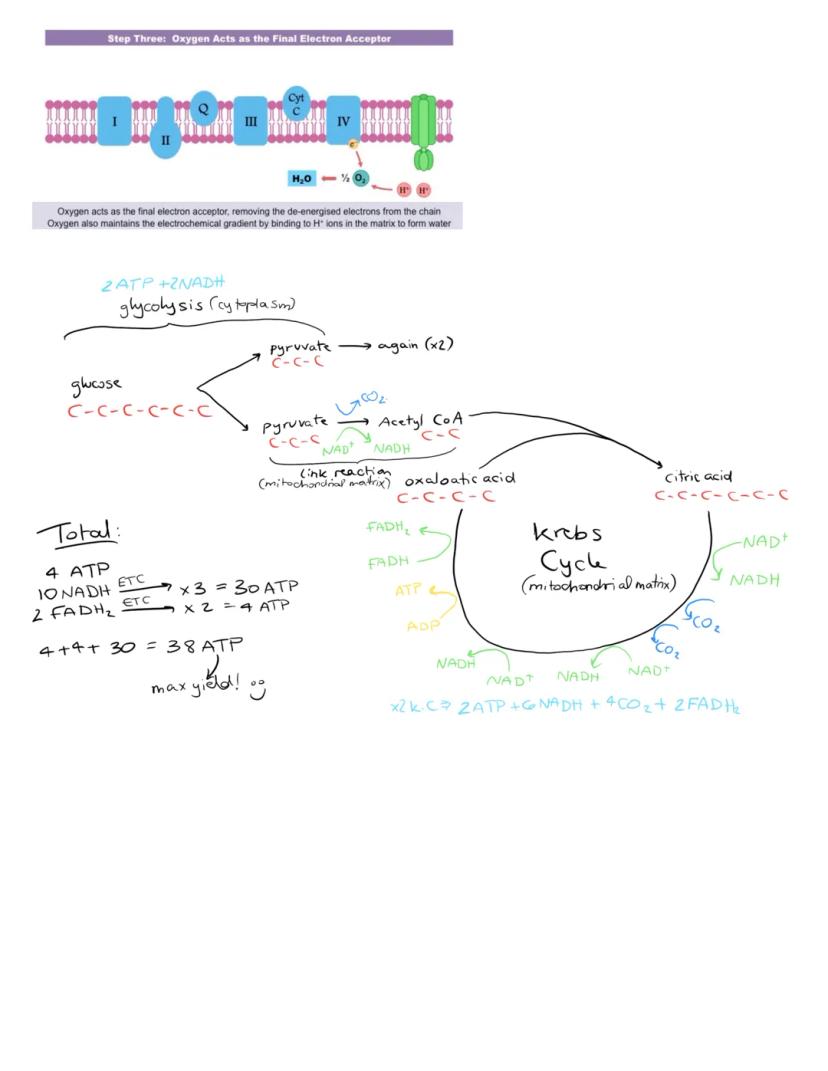 Step Three: Oxygen Acts as the Final Electron Acceptor
I
II
Q
III
Cyt
C
IV
e-
H₂O
½ O₂
H⁺ H⁺
Oxygen acts as the final electron acceptor, removing the de-energised electrons from the chain
Oxygen also maintains the electrochemical gradient by binding to H⁺ ions in the matrix to form water
2ATP +2NADH
glycolysis (cytoplasm)
pyruvate → again (x2)
C-C-C
glucose
C-C-C-C-C-C
CO₂
pyruvate → Acetyl CoA
C-C-C
C-C
NAD⁺ NADH
link reaction
(mitochondrial matrix)
oxaloatic acid
C-C-C-C
citric acid
C-C-C-C-C-C
Krebs
Cycle
(mitochondrial matrix)
FADH₂
FADH
ATP
ADP
NADH
NAD⁺
NADH
NAD⁺
CO₂
CO₂
NAD⁺
NADH
x2 K.C ⇒ 2ATP +6NADH + 4CO₂ + 2FADH₂
Total:
4 ATP
10NADH ETC → x3 = 30 ATP
2 FADH₂ ETC → x 2 = 4 ATP
4+4+ 30 = 38 ATP
max yield!